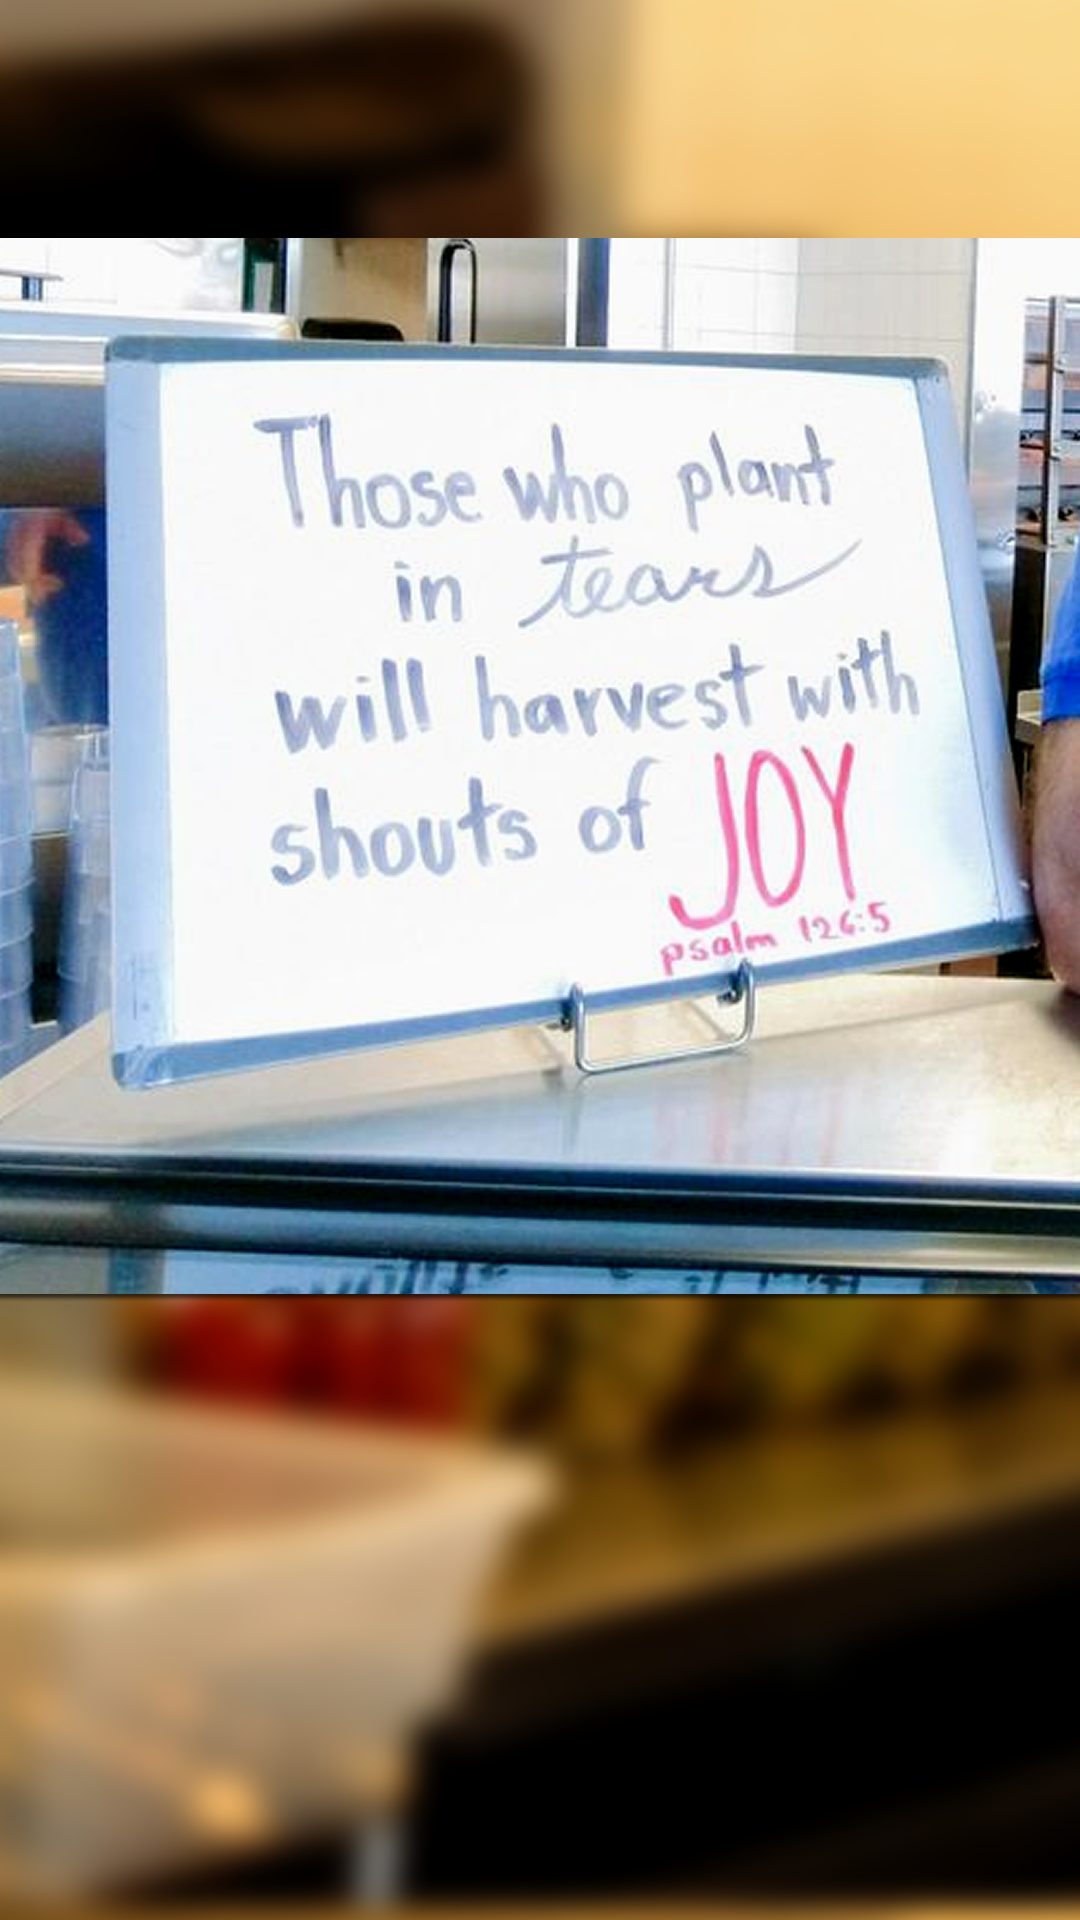 Those who plant
in tears
will harvest with
shouts of JOY
psalm 126:5